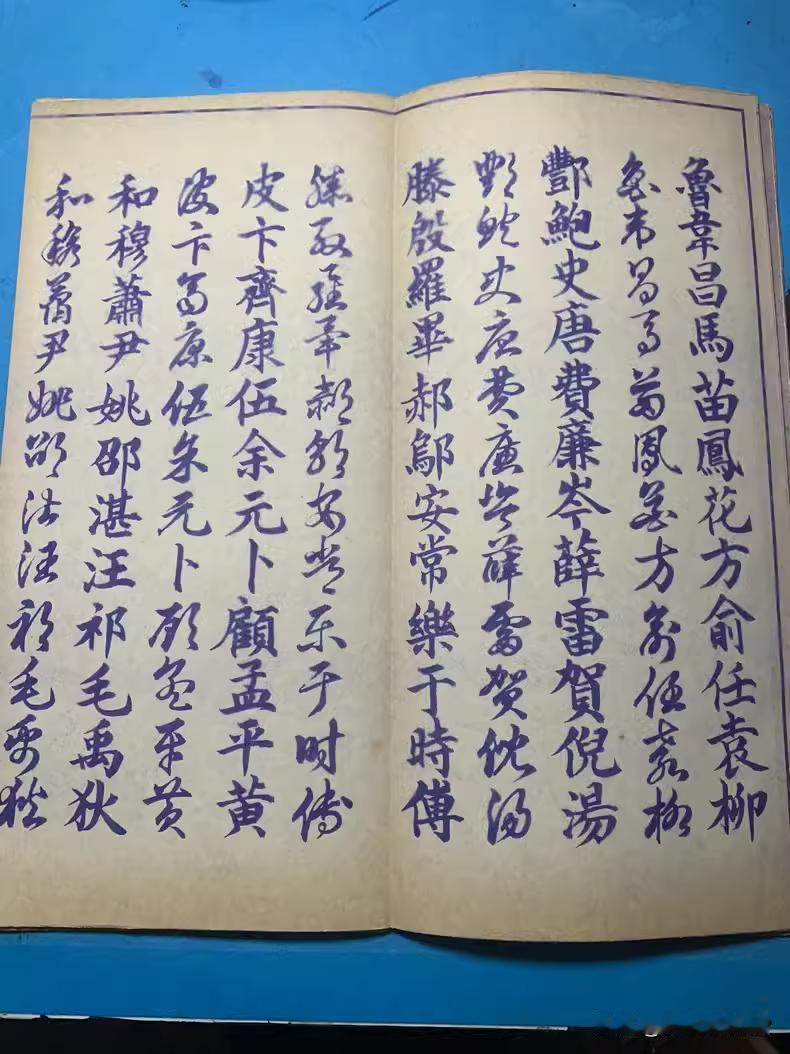 魯韋昌馬苗鳳花方俞任袁柳
魯韋昌馬苗鳳花方俞任袁柳
酆鮑史唐費廉岑薛雷賀倪湯
酆鮑史唐費廉岑薛雷賀倪湯
滕殷羅畢郝鄔安常樂于時傅
滕殷羅畢郝鄔安常樂于時傅
皮卞齊康伍余元卜顧孟平黃
皮卞齊康伍余元卜顧孟平黃
和穆蕭尹姚邵湛汪祁毛禹狄
和穆蕭尹姚邵湛汪祁毛禹狄